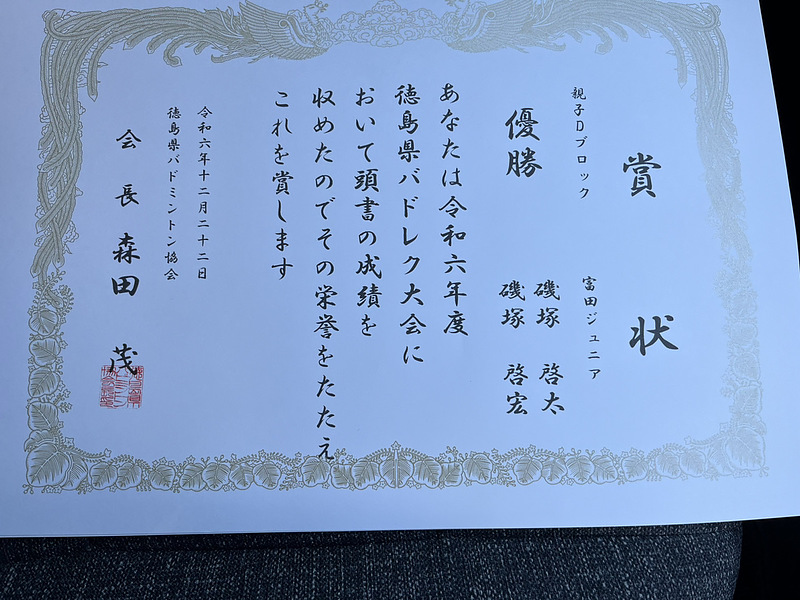 賞状
親子Dブロック
優勝
富田ジュニア
磯塚 啓太
磯塚 啓宏
あなたは令和六年度
徳島県バドレク大会に
おいて頭書の成績を
収めたのでその栄誉をたたえ
これを賞します
令和六年十二月二十二日
徳島県バドミントン協会
会長 森田 茂